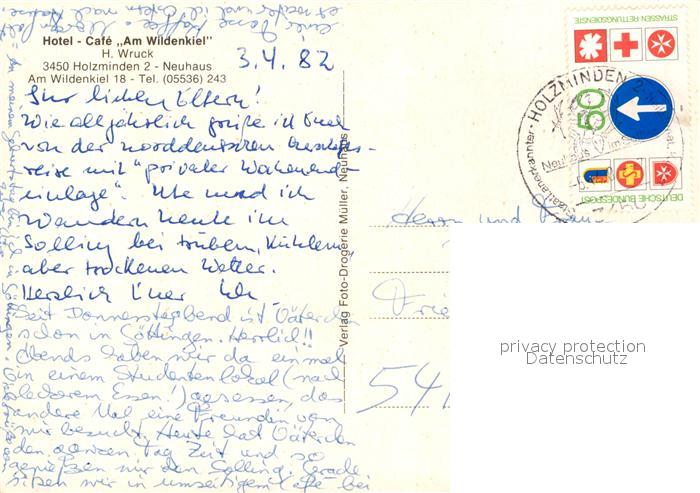 Hotel - Café „Am Wildenkiel"
H. Wruck
3450 Holzminden 2 - Neuhaus
Am Wildenkiel 18 - Tel. (05536) 243
3.4.82
Ihr lieben Eltern!
Wie alljährlich grüße ich Euch
von der norddeutschen
reise mit "privater Wochenend-
einlage". Ute und ich
wandern heute im
Solling bei trübem, kühlem,
aber trockenem Wetter.
Herzlich Euer
Seit Donnerstagabend ist Väterchen
schon in Göttingen. Herrlich!!
Abends haben wir da einmal
in einem Studentenlokal (nach
leckerem Essen!) gesessen, das
andere Mal eine Freundin von
mir besucht. Heute hat Väterchen
den ganzen Tag Zeit und so
genießen wir den Solling. Gerade
sitzen wir in umseitigem Café bei
Verlag Foto-Drogerie Müller, Neuhaus
Herrn und Frau
Frie
541
STRASSEN-RETTUNGSDIENSTE
50
DEUTSCHE BUNDESPOST
HOLZMINDEN 2
Neuhaus
3450
privacy protection
Datenschutz